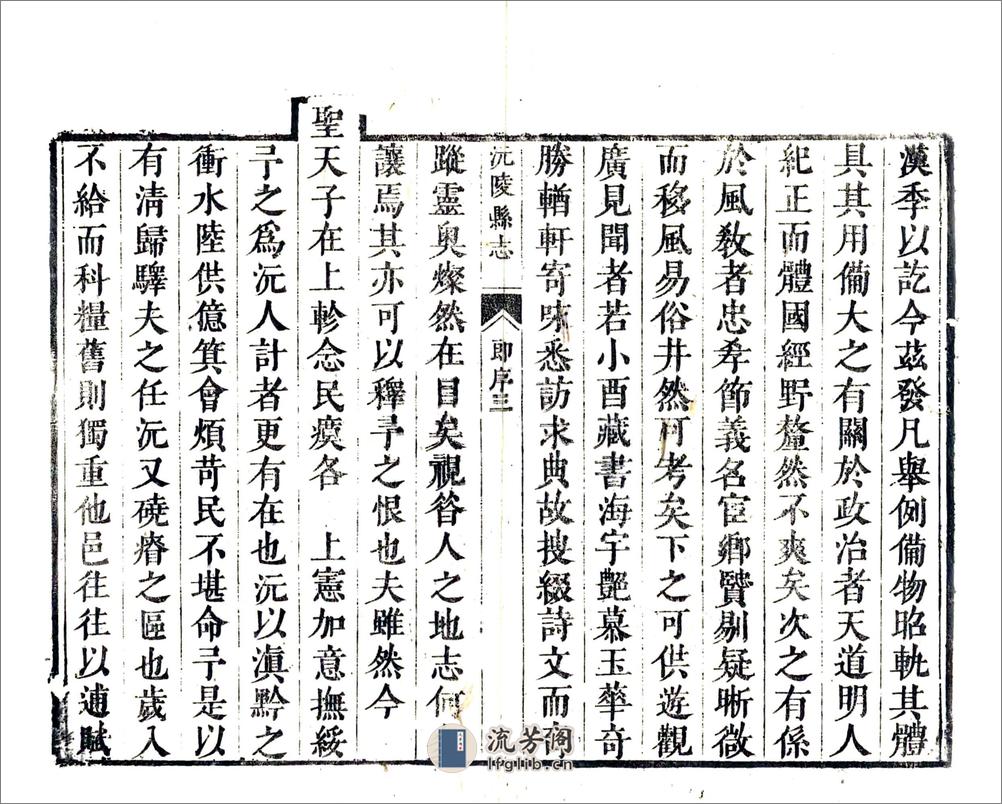 漢季以訖今茲發凡舉例備物昭軌其體
具其用備大之有關於政治者天道明人
紀正而體國經野釐然不爽矣次之有係
於風敎者忠孝節義名宦鄉賢剔疑晰微
而移風易俗井然可考矣下之可供遊觀
廣見聞者若小酉藏書海宇艷慕玉華奇
勝輶軒寄咏悉訪求典故搜綴詩文而
沅陵縣志 即序三
蹤靈奥燦然在目矣視昝人之地志何
讓焉其亦可以釋予之恨也夫雖然今
聖天子在上軫念民瘼各 上憲加意撫綏
予之爲沅人計者更有在也沅以滇黔之
衝水陸供億箕會煩苛民不堪命予是以
有淸歸驛夫之任沅又磽瘠之區也歲入
不給而科糧舊則獨重他邑往往以逋賦
流芳阁
lfglib.cn